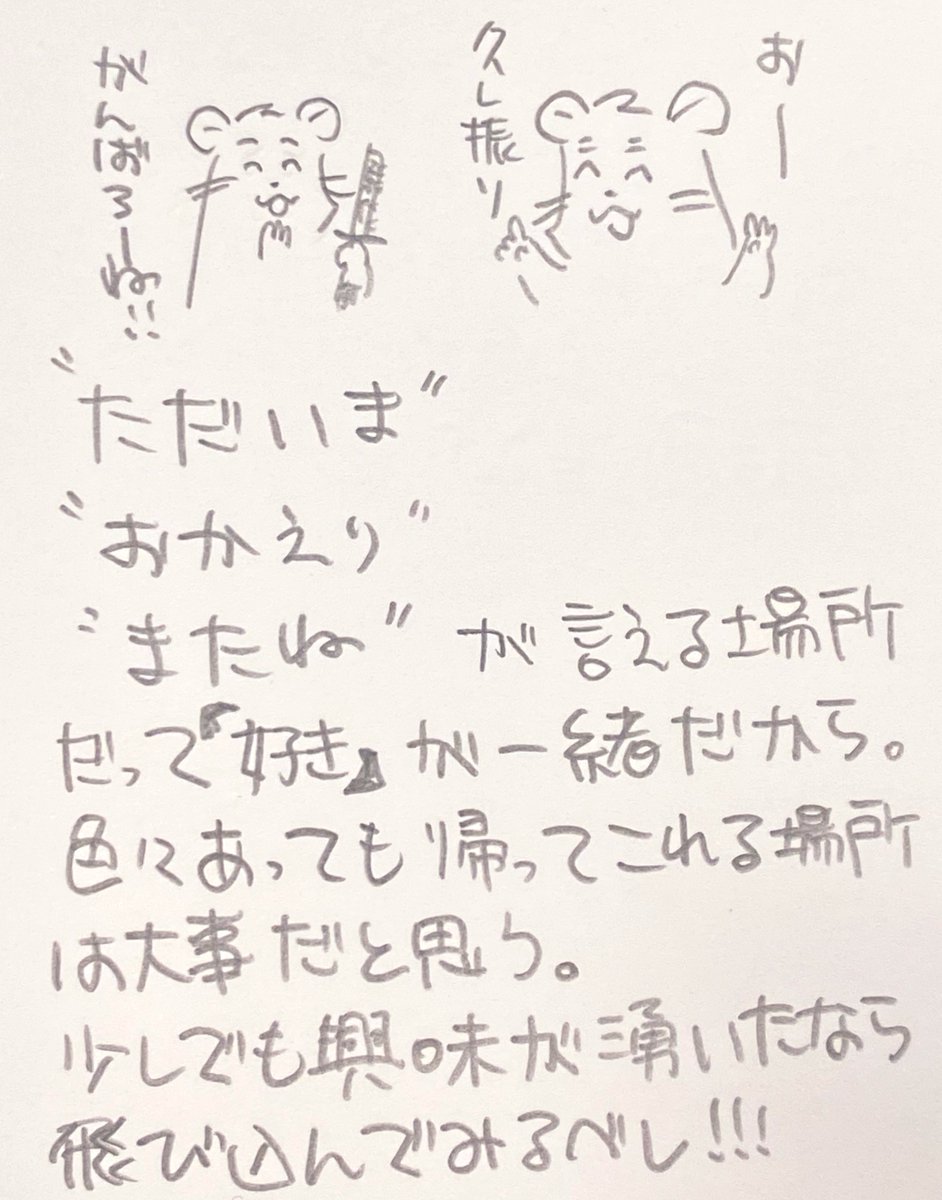 おー
久し振りー
がんばろーね!!
"ただいま"
"おかえり"
"またね"が言える場所
だって『好き』が一緒だから。
色にあっても帰ってこれる場所
は大事だと思う。
少しでも興味が湧いたなら
飛び込んでみるべし!!!